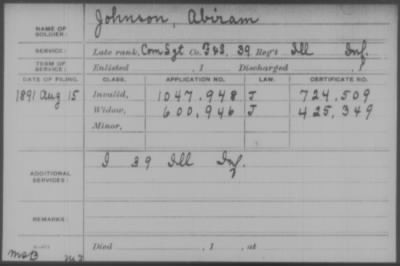 NAME OF SOLDIER: Johnson, Abiram
SERVICE: Late rank, Com Sgt Co. F&S, 39 Reg't Ill Inf.
TERM OF SERVICE: Enlisted , 1 Discharged , 1
DATE OF FILING. CLASS. APPLICATION NO. LAW. CERTIFICATE NO.
1891 Aug 15 Invalid, 1047,948 J 724,509
Widow, 600,946 J 425,349
Minor,
ADDITIONAL SERVICES: I 39 Ill Inf
REMARKS:
Died , 1 , at